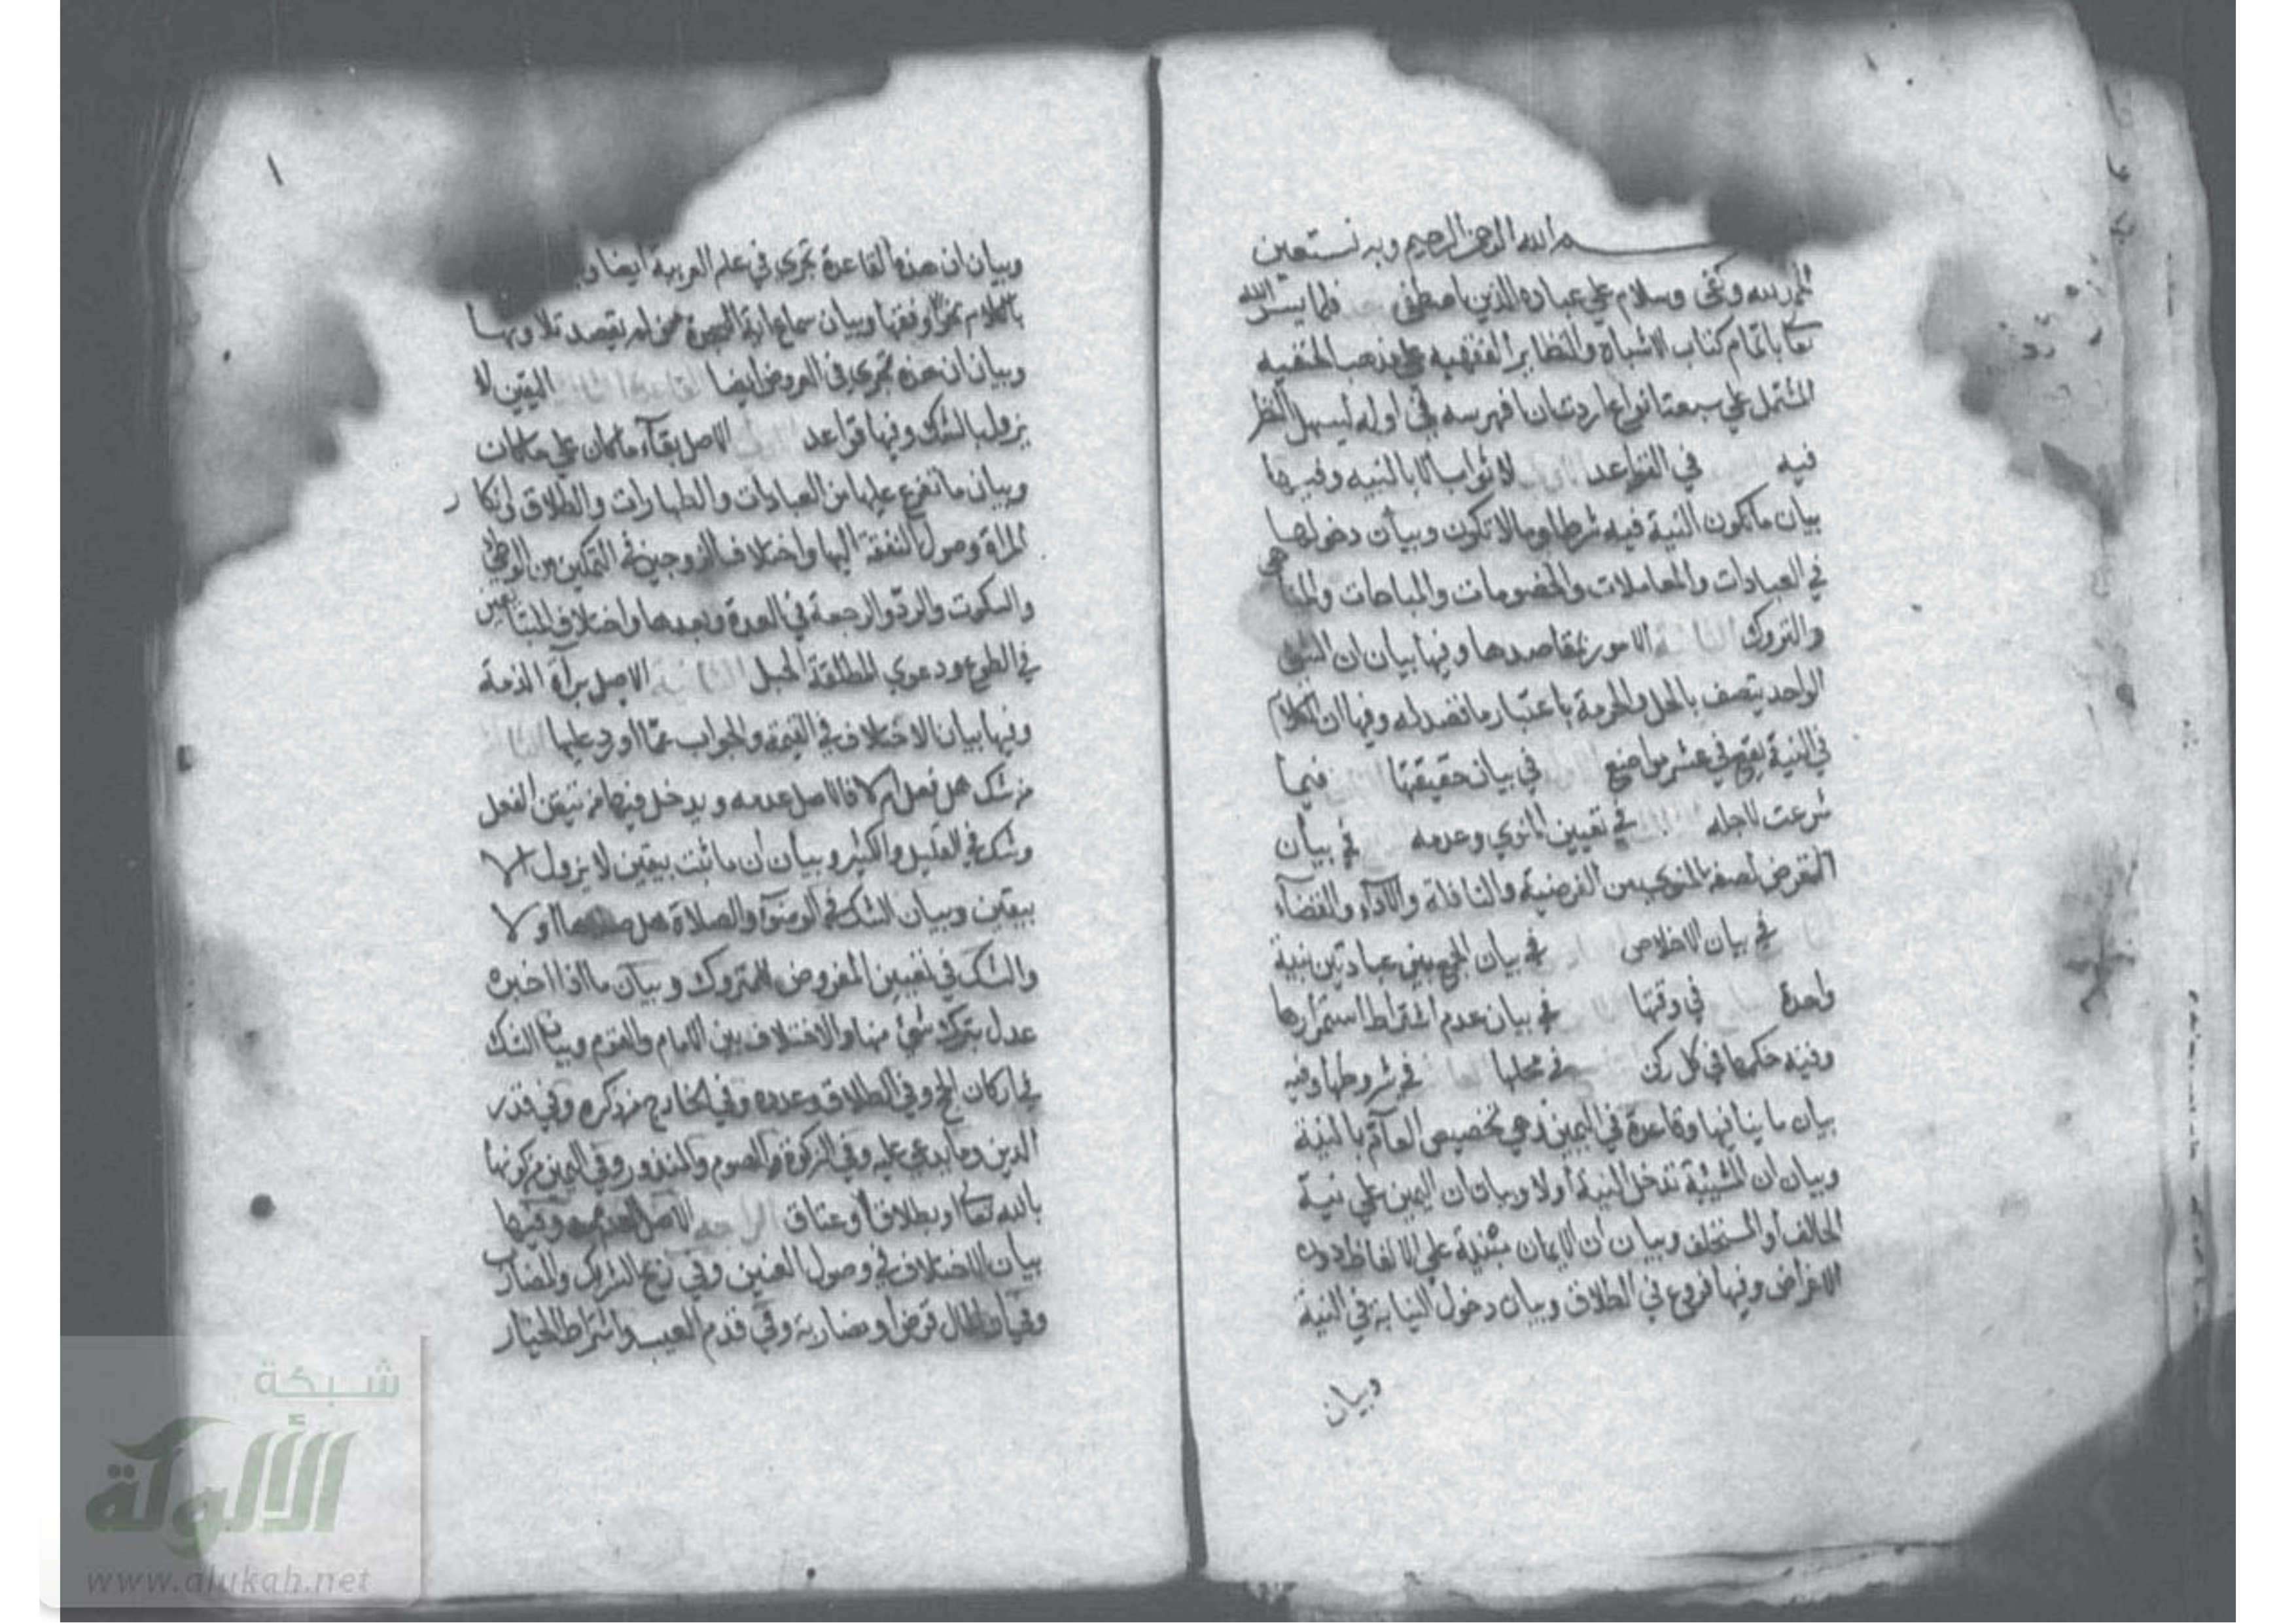 بسم الله الرحمن الرحيم وبه نستعين
الحمد لله وكفى وسلام على عباده الذين اصطفى فلما يسر الله
تعا باتمام كتاب الاشباه والنظاير الفقهيه على مذهب الحنفيه
المشتمل على سبعة انواع اردت ان افهرسه في اوله ليسهل النظر
فيه في القواعد الاولى لا ثواب الا بالنيه وفيها
بيان ما تكون النية فيه شرطا وما لا تكون وبيان دخولها
في العبادات والمعاملات والخصومات والمباحات والمناهي
والتروك الثانية الامور بمقاصدها وفيها بيان ان الشئ
الواحد يتصف بالحل والحرمة باعتبار ما قصد له وفيها ان الكلام
في النية يقع في عشر مواضع الاول في بيان حقيقتها فيما
شرعت لاجله في تعيين المنوي وعدمه في بيان
التعرض لصفة المنوي من الفرضية والنافلة والاداء والقضاء
في بيان الاخلاص في بيان الجمع بين عبادتين بنية
واحدة في وقتها في بيان عدم اشتراط استمرارها
وفيه حكمها في كل ركن في محلها في شروطها وفيه
بيان ما ينافيها وقاعدة في اليمين وهي تخصيص العام بالنية
وبيان ان المشيئة تدخل النية اولا وبيان ان اليمين على نية
الحالف او المستحلف وبيان ان الايمان مبنية على الالفاظ دون
الاغراض وفيها فروع في الطلاق وبيان دخول النيابة في النية
وبيان
وبيان ان هذه القاعدة تجري في علم العربية ايضا
بالكلام نحوا وفقها وبيان سماع اية السجدة ممن لم يقصد تلاوتها
وبيان ان هذه تجري في العروض ايضا القاعدة الثالثة اليقين لا
يزول بالشك وفيها قواعد الاولى الاصل بقاء ما كان على ما كان
وبيان ما تفرع عليها من العبادات والطهارات والطلاق وانكار
المراة وصول النفقة اليها واختلاف الزوجين في التمكين من الوطئ
والسكوت والرد والرجعة في العدة وبعدها واختلاف المتبايعين
في الطوع ودعوي المطلقة الحبل الثانية الاصل براة الذمة
وفيها بيان الاختلاف في القيمة والجواب عما اورد عليها الثالثة
من شك هل فعل ام لا فالاصل عدمه ويدخل فيها من تيقن الفعل
وشك في القليل والكثير وبيان ان ما ثبت بيقين لا يزول الا
بيقين وبيان الشك في الوضوء والصلاة هل صلاها اولا
والشك في تعيين المفروض المتروك وبيان ما اذا اخبره
عدل بترك شئ منها والاختلاف بين الامام والقوم وبيان الشك
في اركان الحج وفي الطلاق وعدده وفي الخارج من ذكره وفي قدر
الدين وما يدعي عليه وفي الزكوة والصوم والمنذور وفي اليمين من كونها
بالله تعا او بطلاق او عتاق الرابعة الاصل العدم وفيها
بيان الاختلاف في وصول العنين وفي ربح الشريك والمضارب
وفي ان المال قرض او مضاربة وفي قدم العيب واشتراط الخيار
شبكة
الألوكة
www.alukah.net